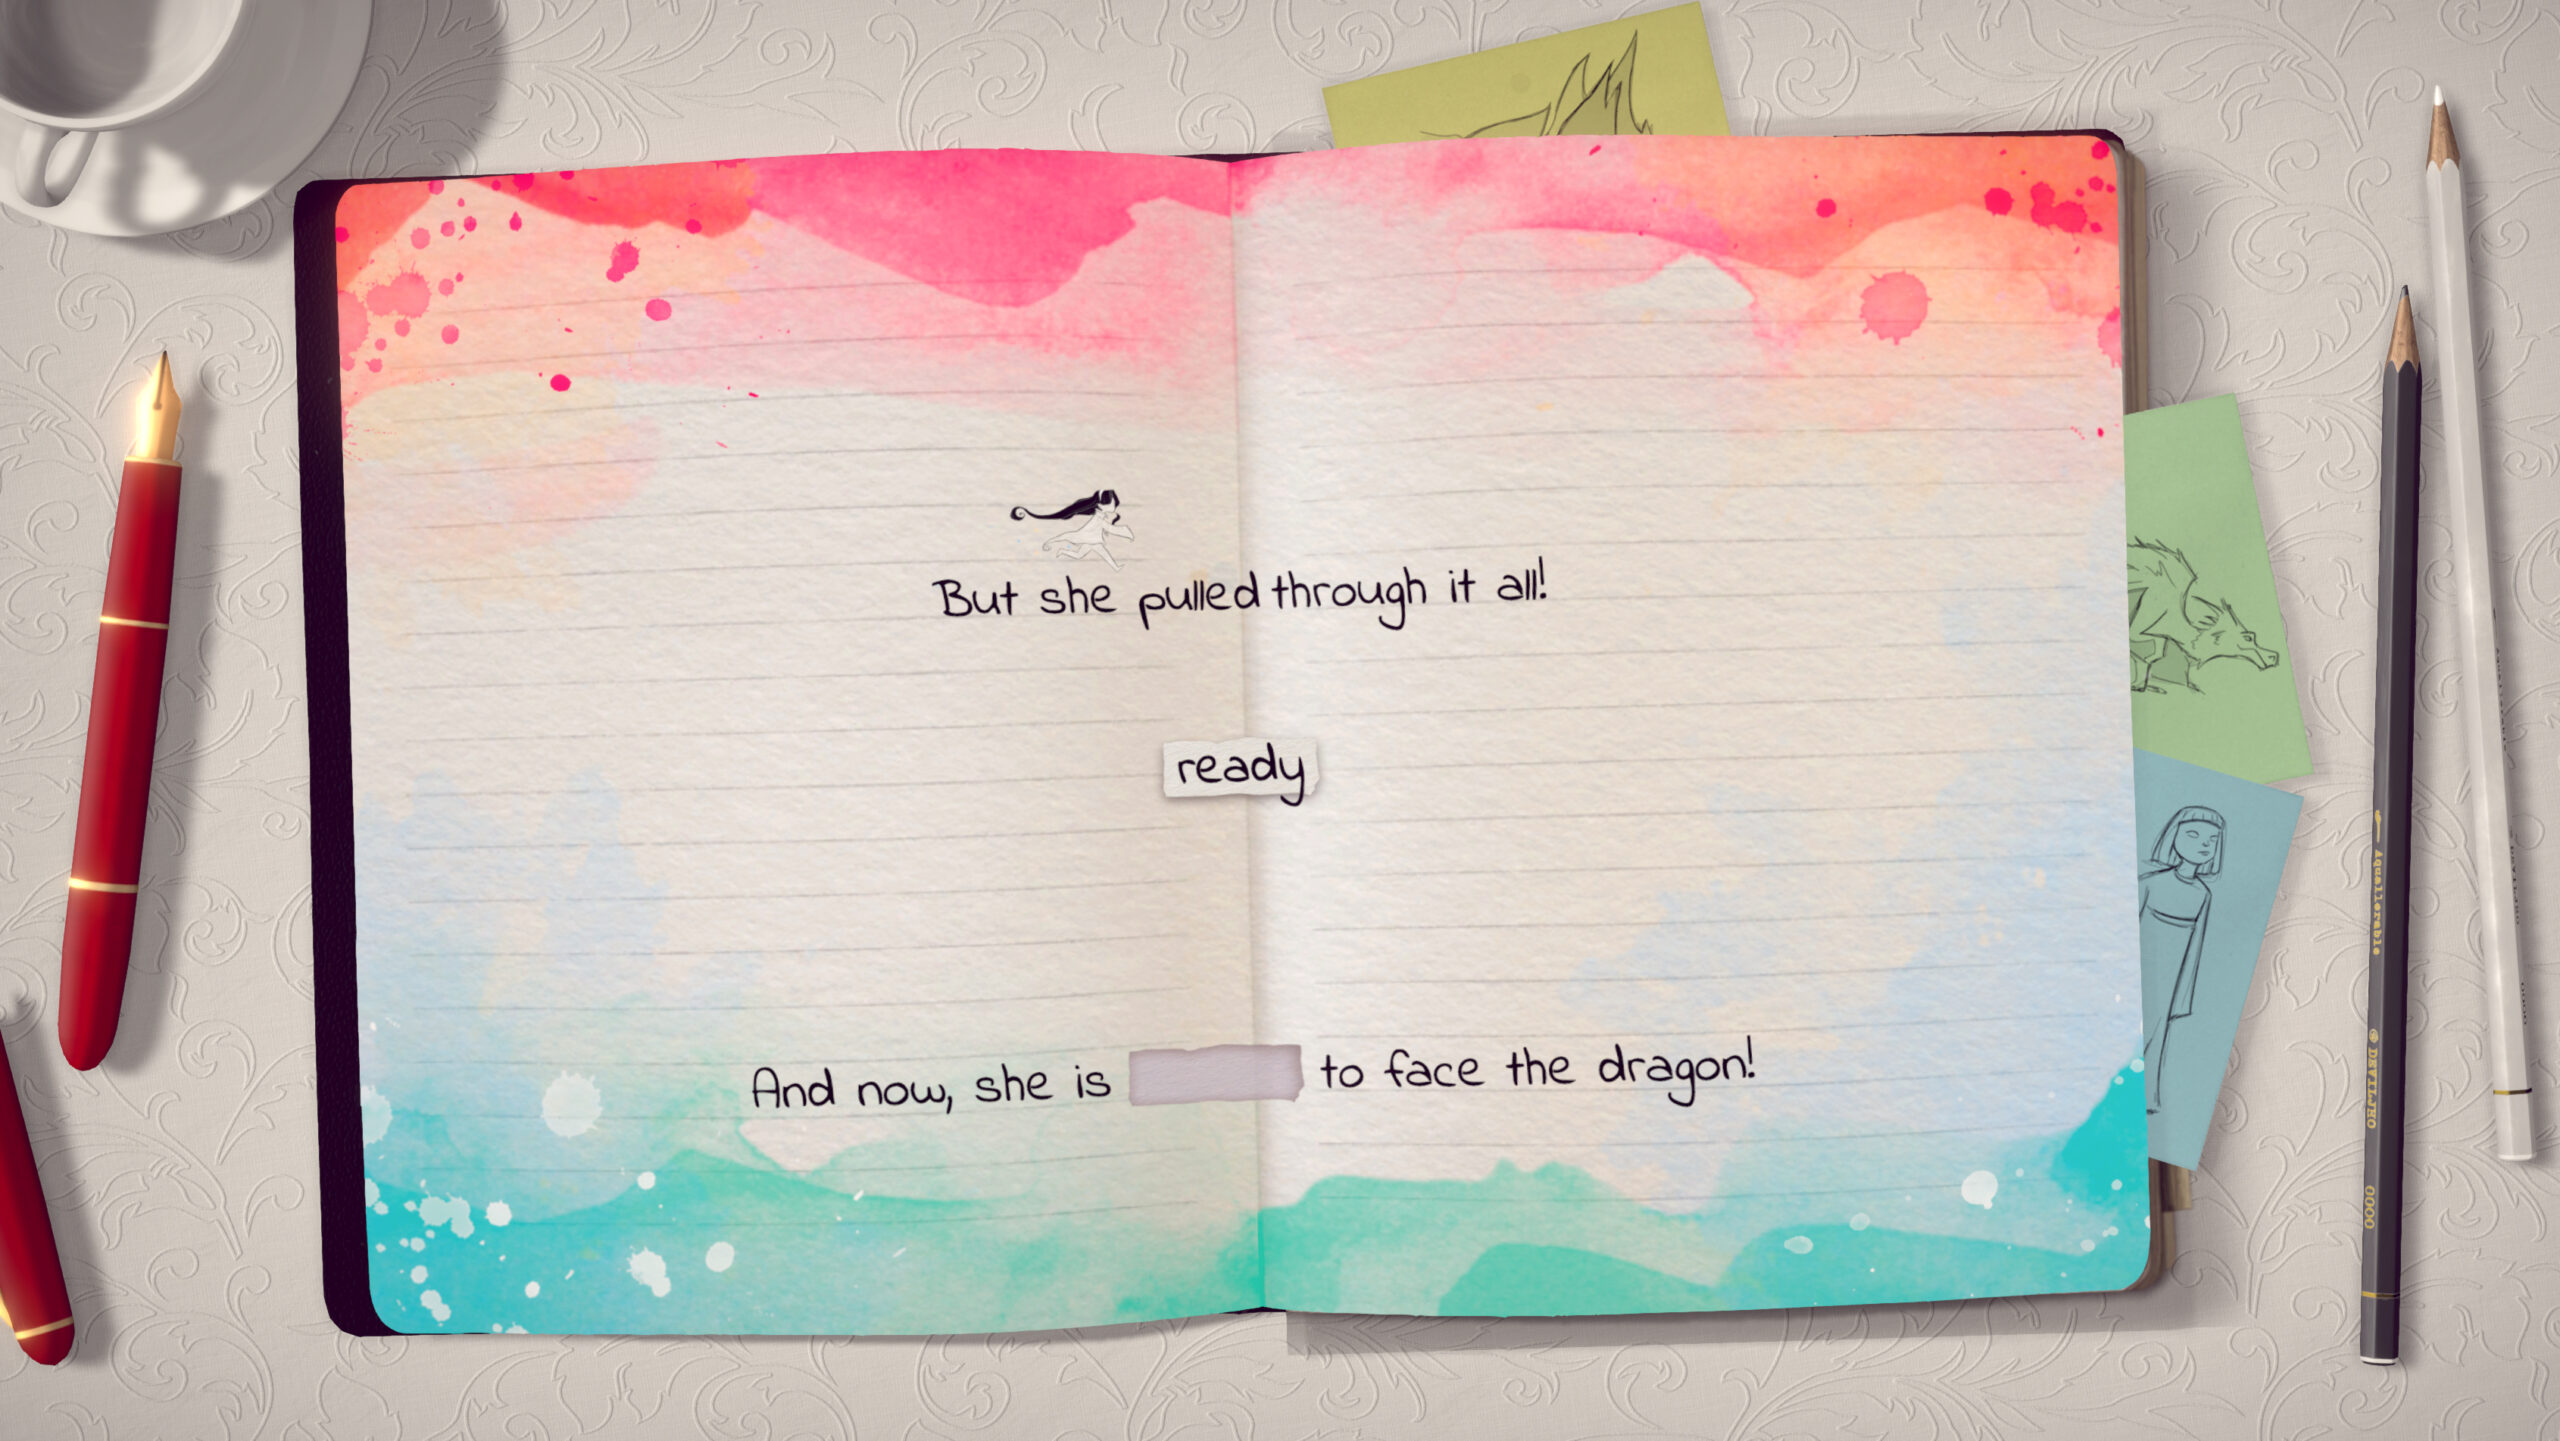 But she pulled through it all!
ready
And now, she is to face the dragon!
Aquallerable
DEVILJHO
0000